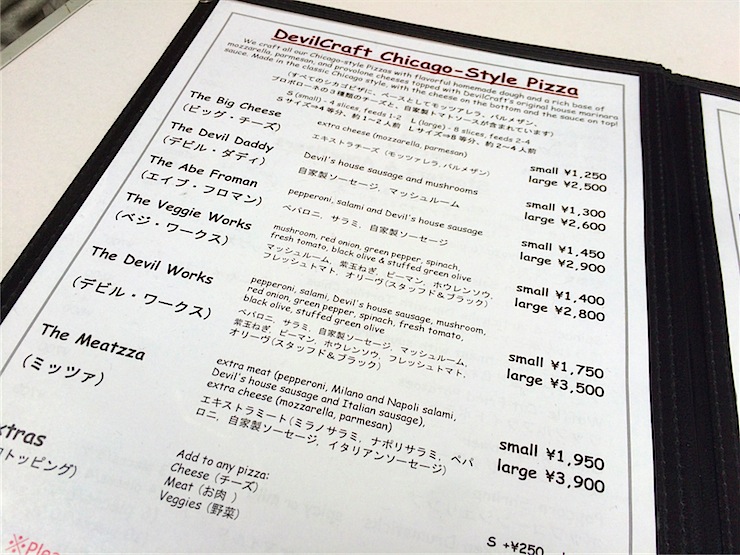 DevilCraft Chicago-Style Pizza
We craft all our Chicago-style Pizzas with flavorful homemade dough and a rich base of
mozzarella, parmesan, and provolone cheeses topped with DevilCraft's original house marinara
sauce. Made in the classic Chicago style, with the cheese on the bottom and the sauce on top!
(すべてのシカゴピザに、ベースとしてモッツァレラ、パルメザン、
プロボローネの3種類のチーズと、自家製トマトソースが含まれています)
S (small) - 4 slices, feeds 1-2 L (large) - 8 slices, feeds 2-4
Sサイズ⇒4等分、約1~2人前 Lサイズ⇒8等分、約2~4人前
The Big Cheese
(ビッグ・チーズ)
extra cheese (mozzarella, parmesan)
エキストラチーズ(モッツァレラ,パルメザン)
small ¥1,250
large ¥2,500
The Devil Daddy
(デビル・ダディ)
Devil's house sausage and mushrooms
自家製ソーセージ、マッシュルーム
small ¥1,300
large ¥2,600
The Abe Froman
(エイブ・フロマン)
pepperoni, salami and Devil's house sausage
ペパロニ、サラミ、自家製ソーセージ
small ¥1,450
large ¥2,900
The Veggie Works
(ベジ・ワークス)
mushroom, red onion, green pepper, spinach,
fresh tomato, black olive & stuffed green olive
マッシュルーム、紫玉ねぎ、ピーマン、ホウレンソウ、
フレッシュトマト、オリーヴ(スタッフド&ブラック)
small ¥1,400
large ¥2,800
The Devil Works
(デビル・ワークス)
pepperoni, salami, Devil's house sausage, mushroom,
red onion, green pepper, spinach, fresh tomato,
black olive, stuffed green olive
ペパロニ、サラミ、自家製ソーセージ、マッシュルーム、
紫玉ねぎ、ピーマン、ホウレンソウ、フレッシュトマト、
オリーヴ(スタッフド&ブラック)
small ¥1,750
large ¥3,500
The Meatzza
(ミッツァ)
extra meat (pepperoni, Milano and Napoli salami,
Devil's house sausage and Italian sausage),
extra cheese (mozzarella, parmesan)
エキストラミート(ミラノサラミ、ナポリサラミ、ペパ
ロニ、自家製ソーセージ、イタリアンソーセージ)
small ¥1,950
large ¥3,900
xtras
トッピング)
Add to any pizza:
Cheese (チーズ)
Meat (お肉 )
Veggies (野菜)
S +¥250
※Plea